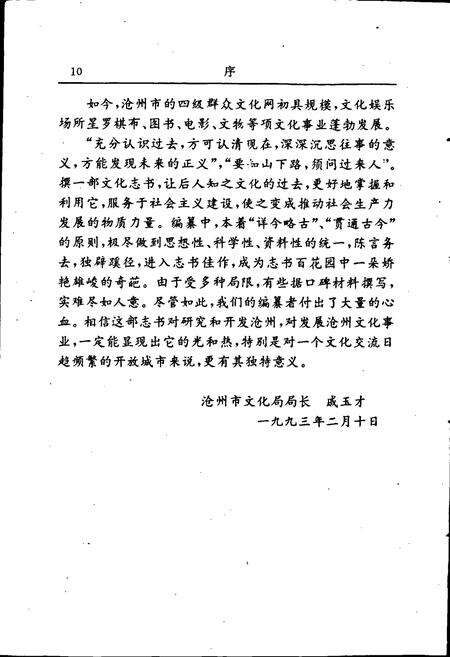 10 序
如今,沧州市的四级群众文化网初具规模,文化娱乐
场所星罗棋布、图书、电影、文物等项文化事业蓬勃发展。
“充分认识过去,方可认清现在,深深沉思往事的意
义,方能发现未来的正义”,“要知山下路,须问过来人”。
撰一部文化志书,让后人知之文化的过去,更好地掌握和
利用它,服务于社会主义建设,使之变成推动社会生产力
发展的物质力量。编纂中,本着“详今略古”、“贯通古今”
的原则,极尽做到思想性、科学性、资料性的统一,陈言务
去,独辟蹊径,进入志书佳作,成为志书百花园中一朵娇
艳雄峻的奇葩。由于受多种局限,有些据口碑材料撰写,
实难尽如人意。尽管如此,我们的编纂者付出了大量的心
血。相信这部志书对研究和开发沧州,对发展沧州文化事
业,一定能显现出它的光和热,特别是对一个文化交流日
趋频繁的开放城市来说,更有其独特意义。
沧州市文化局局长 戚玉才
一九九三年二月十日